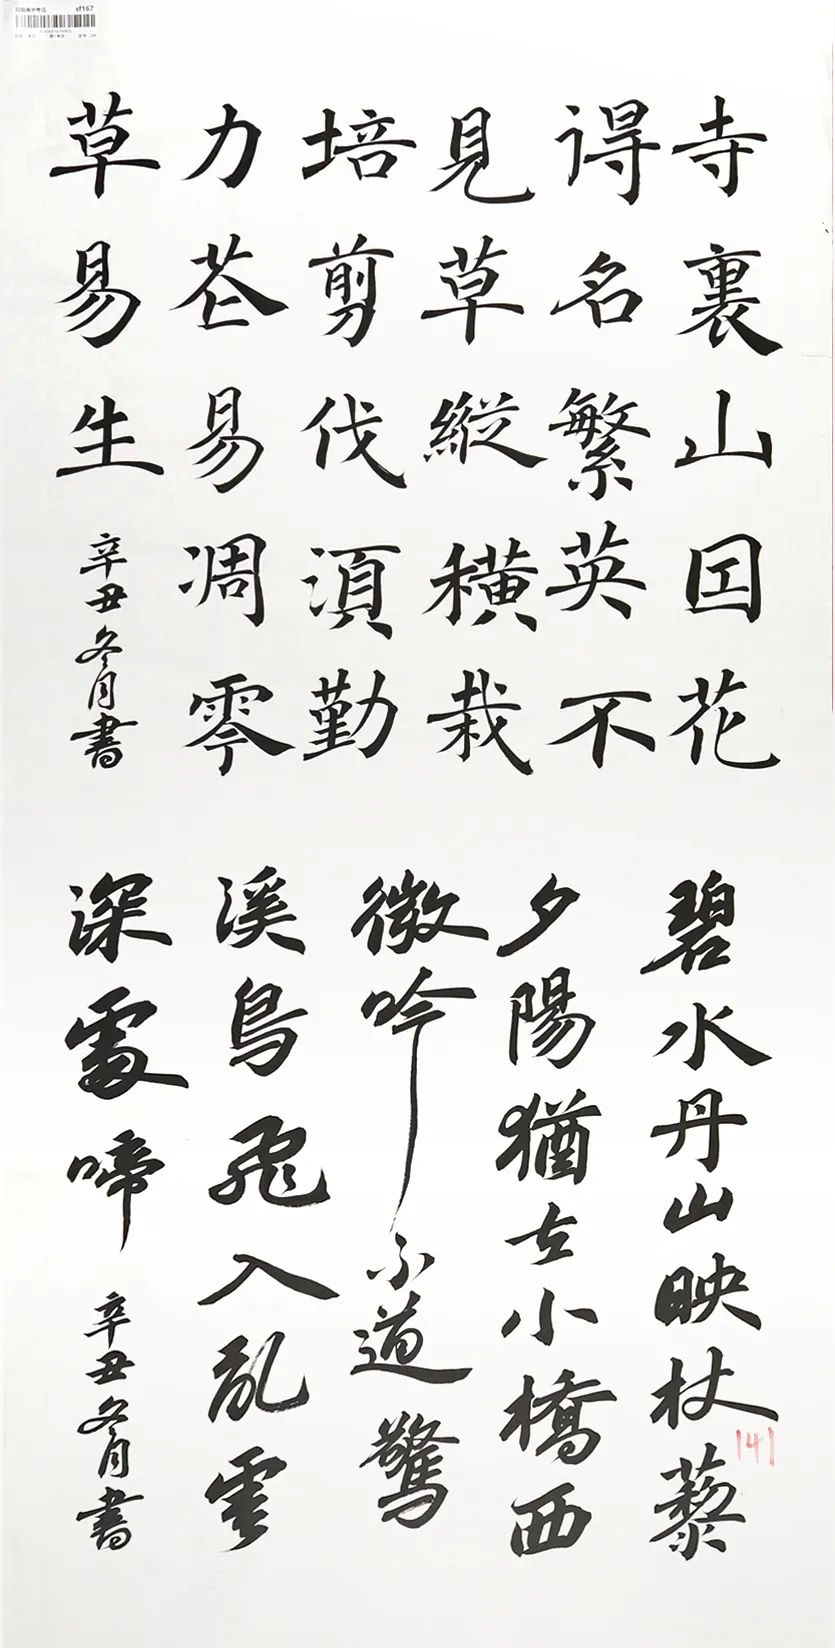 sf167
寺裏山因花
得名繁英不
見草縱横栽
培剪伐須勤
力花易凋零
草易生
辛丑冬月書
碧水丹山映杖藜
夕陽猶在小橋西
微吟不道驚
溪鳥飛入亂雲
深處啼
辛丑冬月書
141